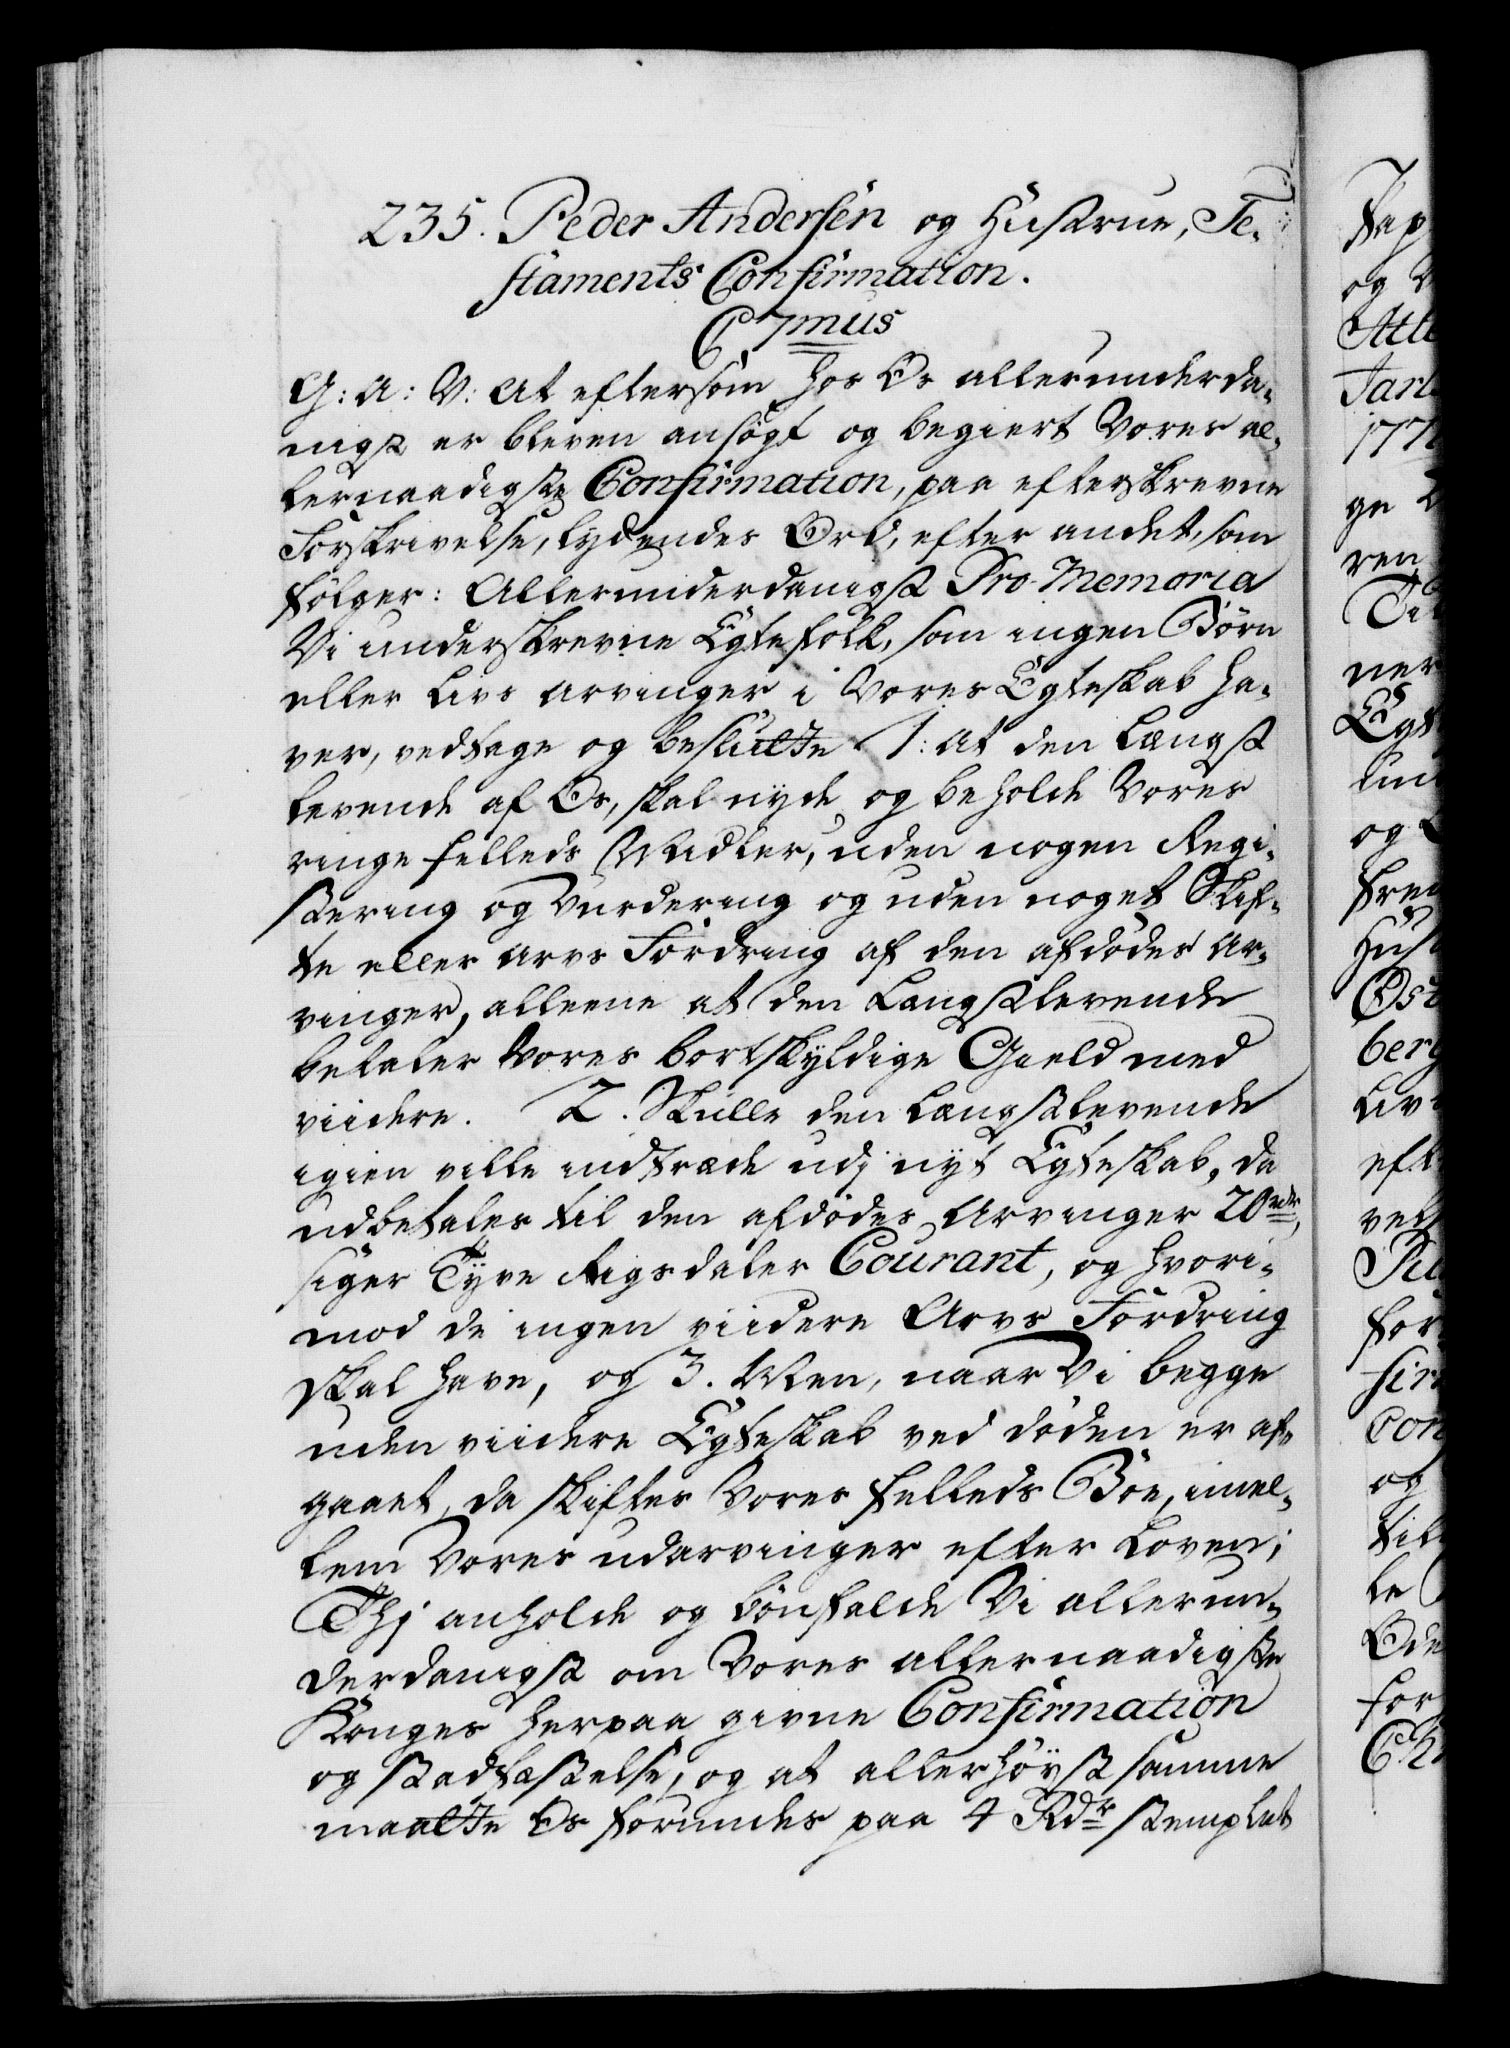 235. Peder Andersen og Hustrue, Te-
staments Confirmation.
C 7mus
G: A: V: At eftersom hos Os allerunderda-
nigst er bleven ansøgt og begiert Vores al-
lernaadigste Confirmation, paa efterskrevne
Forskrivelse, lydendes Ord, efter andet, som
følger: Allerunderdanigst Pro-Memoria
Vi underskrevne Egtefolk, som ingen Børn
eller Livs Arvinger i Vores Egteskab ha-
ver, vedtage og beslutte 1: At den Længst
levende af Os, skal nyde og beholde Vores
ringe fælleds Midler, uden nogen Regi-
stering og Vurdering og uden noget Skif-
te eller Arvs Fordring af den afdødes Ar-
vinger, alleene at den Længstlevende
betaler Vores bortskyldige Gield med
viidere. 2. Skulle den Længstlevende
igien ville indtræde udj nyt Egteskab, da
udbetales til den afdødes Arvinger 20 rdr,
siger Tyve Rigsdaler Courant, og hvori-
mod de ingen viidere Arvs Fordring
skal have, og 3. Men, naar Vi begge
uden viidere Egteskab ved døden er af-
gaaet, da skiftes Vores Fælleds Boe, imel-
lem Vores udarvinger efter Loven;
Thj anholde og bønfalde Vi allerun-
derdanigst om Vores allernaadigste
Konges herpaa givne Confirmation
og Stadfæstelse, og at allerhøyst samme
maatte Os forundes paa 4 Rdr stemplet